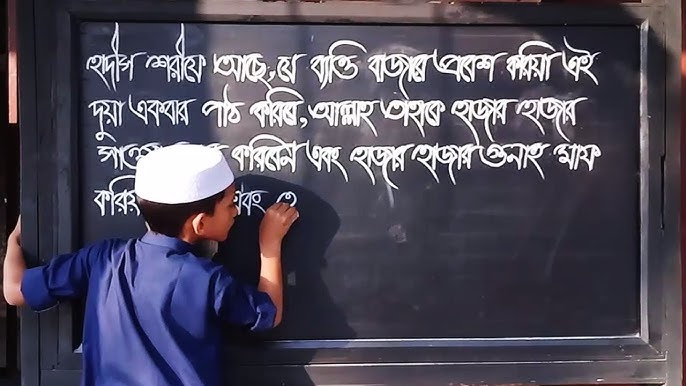 হাদীস শরীফে আছে, যে ব্যক্তি বাজারে প্রবেশ করিয়া এই
দুয়া একবার পাঠ করিবে, আল্লাহ তাহাকে হাজার হাজার
করিবেন এবং হাজার হাজার গুনাহ মাফ
এবং